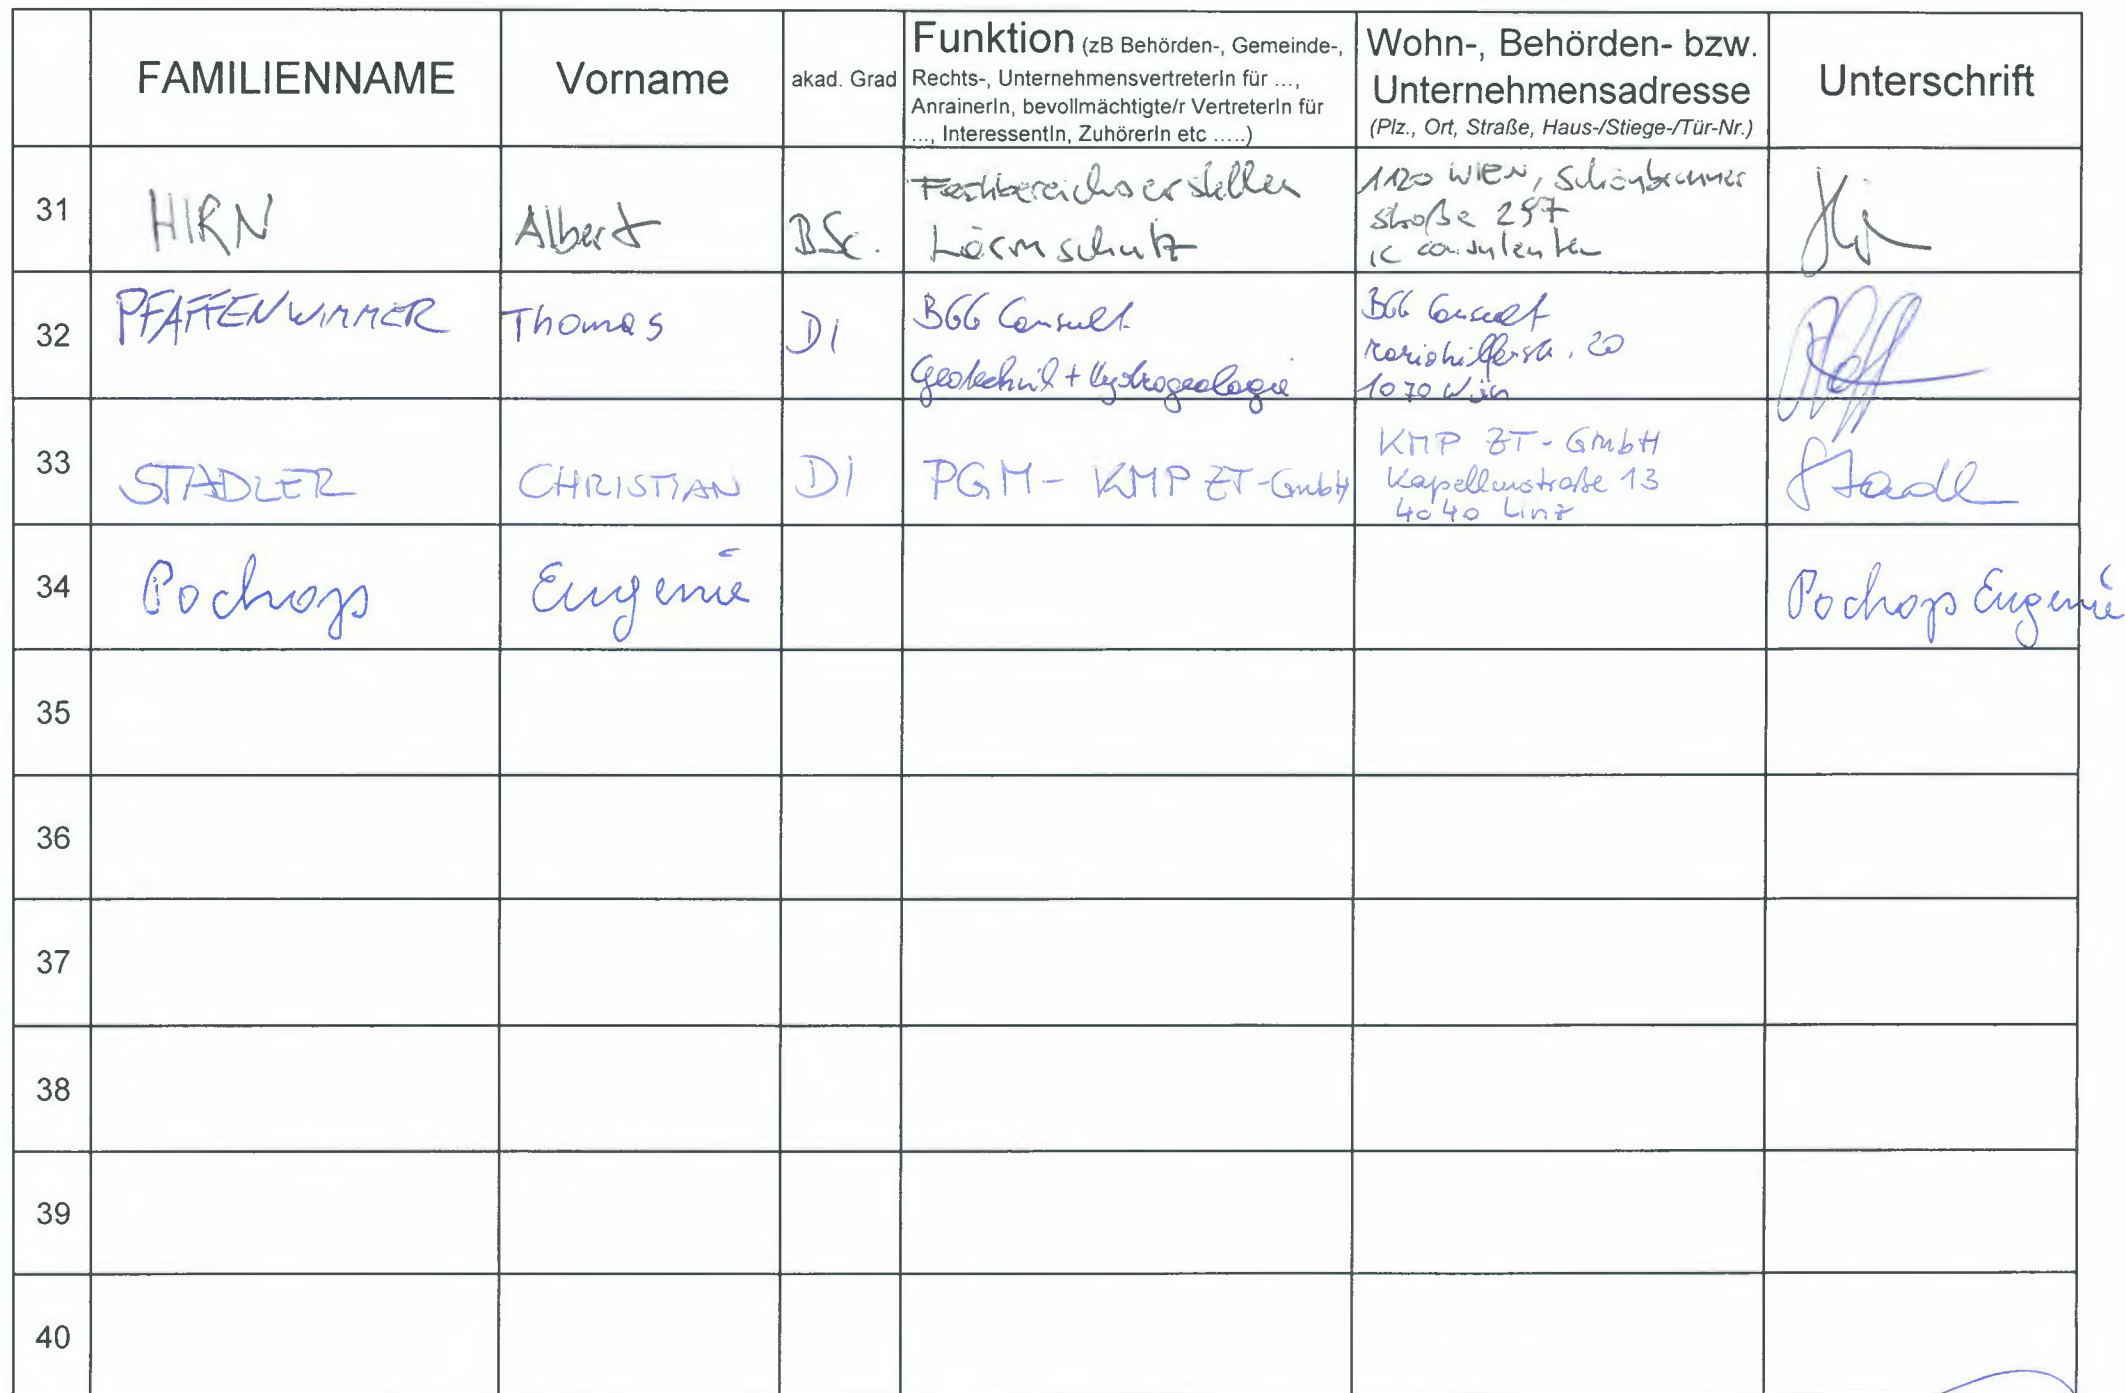 FAMILIENNAME
Vorname
akad. Grad
Funktion (zB Behörden-, Gemeinde-,
Rechts-, UnternehmensvertreterIn für ...,
AnrainerIn, bevollmächtigte/r VertreterIn für
..., InteressentIn, ZuhörerIn etc .....)
Wohn-, Behörden- bzw.
Unternehmensadresse
(Plz., Ort, Straße, Haus-/Stiege-/Tür-Nr.)
Unterschrift
31
HIRN
Albert
BSc.
Fachbereichsersteller
Lärmschutz
1120 WIEN, Schönbrunner
straße 297
ic consulenten
32
PFAFFENWIMMER
Thomas
DI
BGG Consult
Geotechnik + Hydrogeologie
BGG Consult
Mariahilferstr. 20
1070 Wien
33
STADLER
CHRISTIAN
DI
PGM - KMP ZT-GmbH
KMP ZT-GmbH
Kapellenstraße 13
4040 Linz
Stadl
34
Pochops
Eugenie
Pochops Eugenie
35
36
37
38
39
40